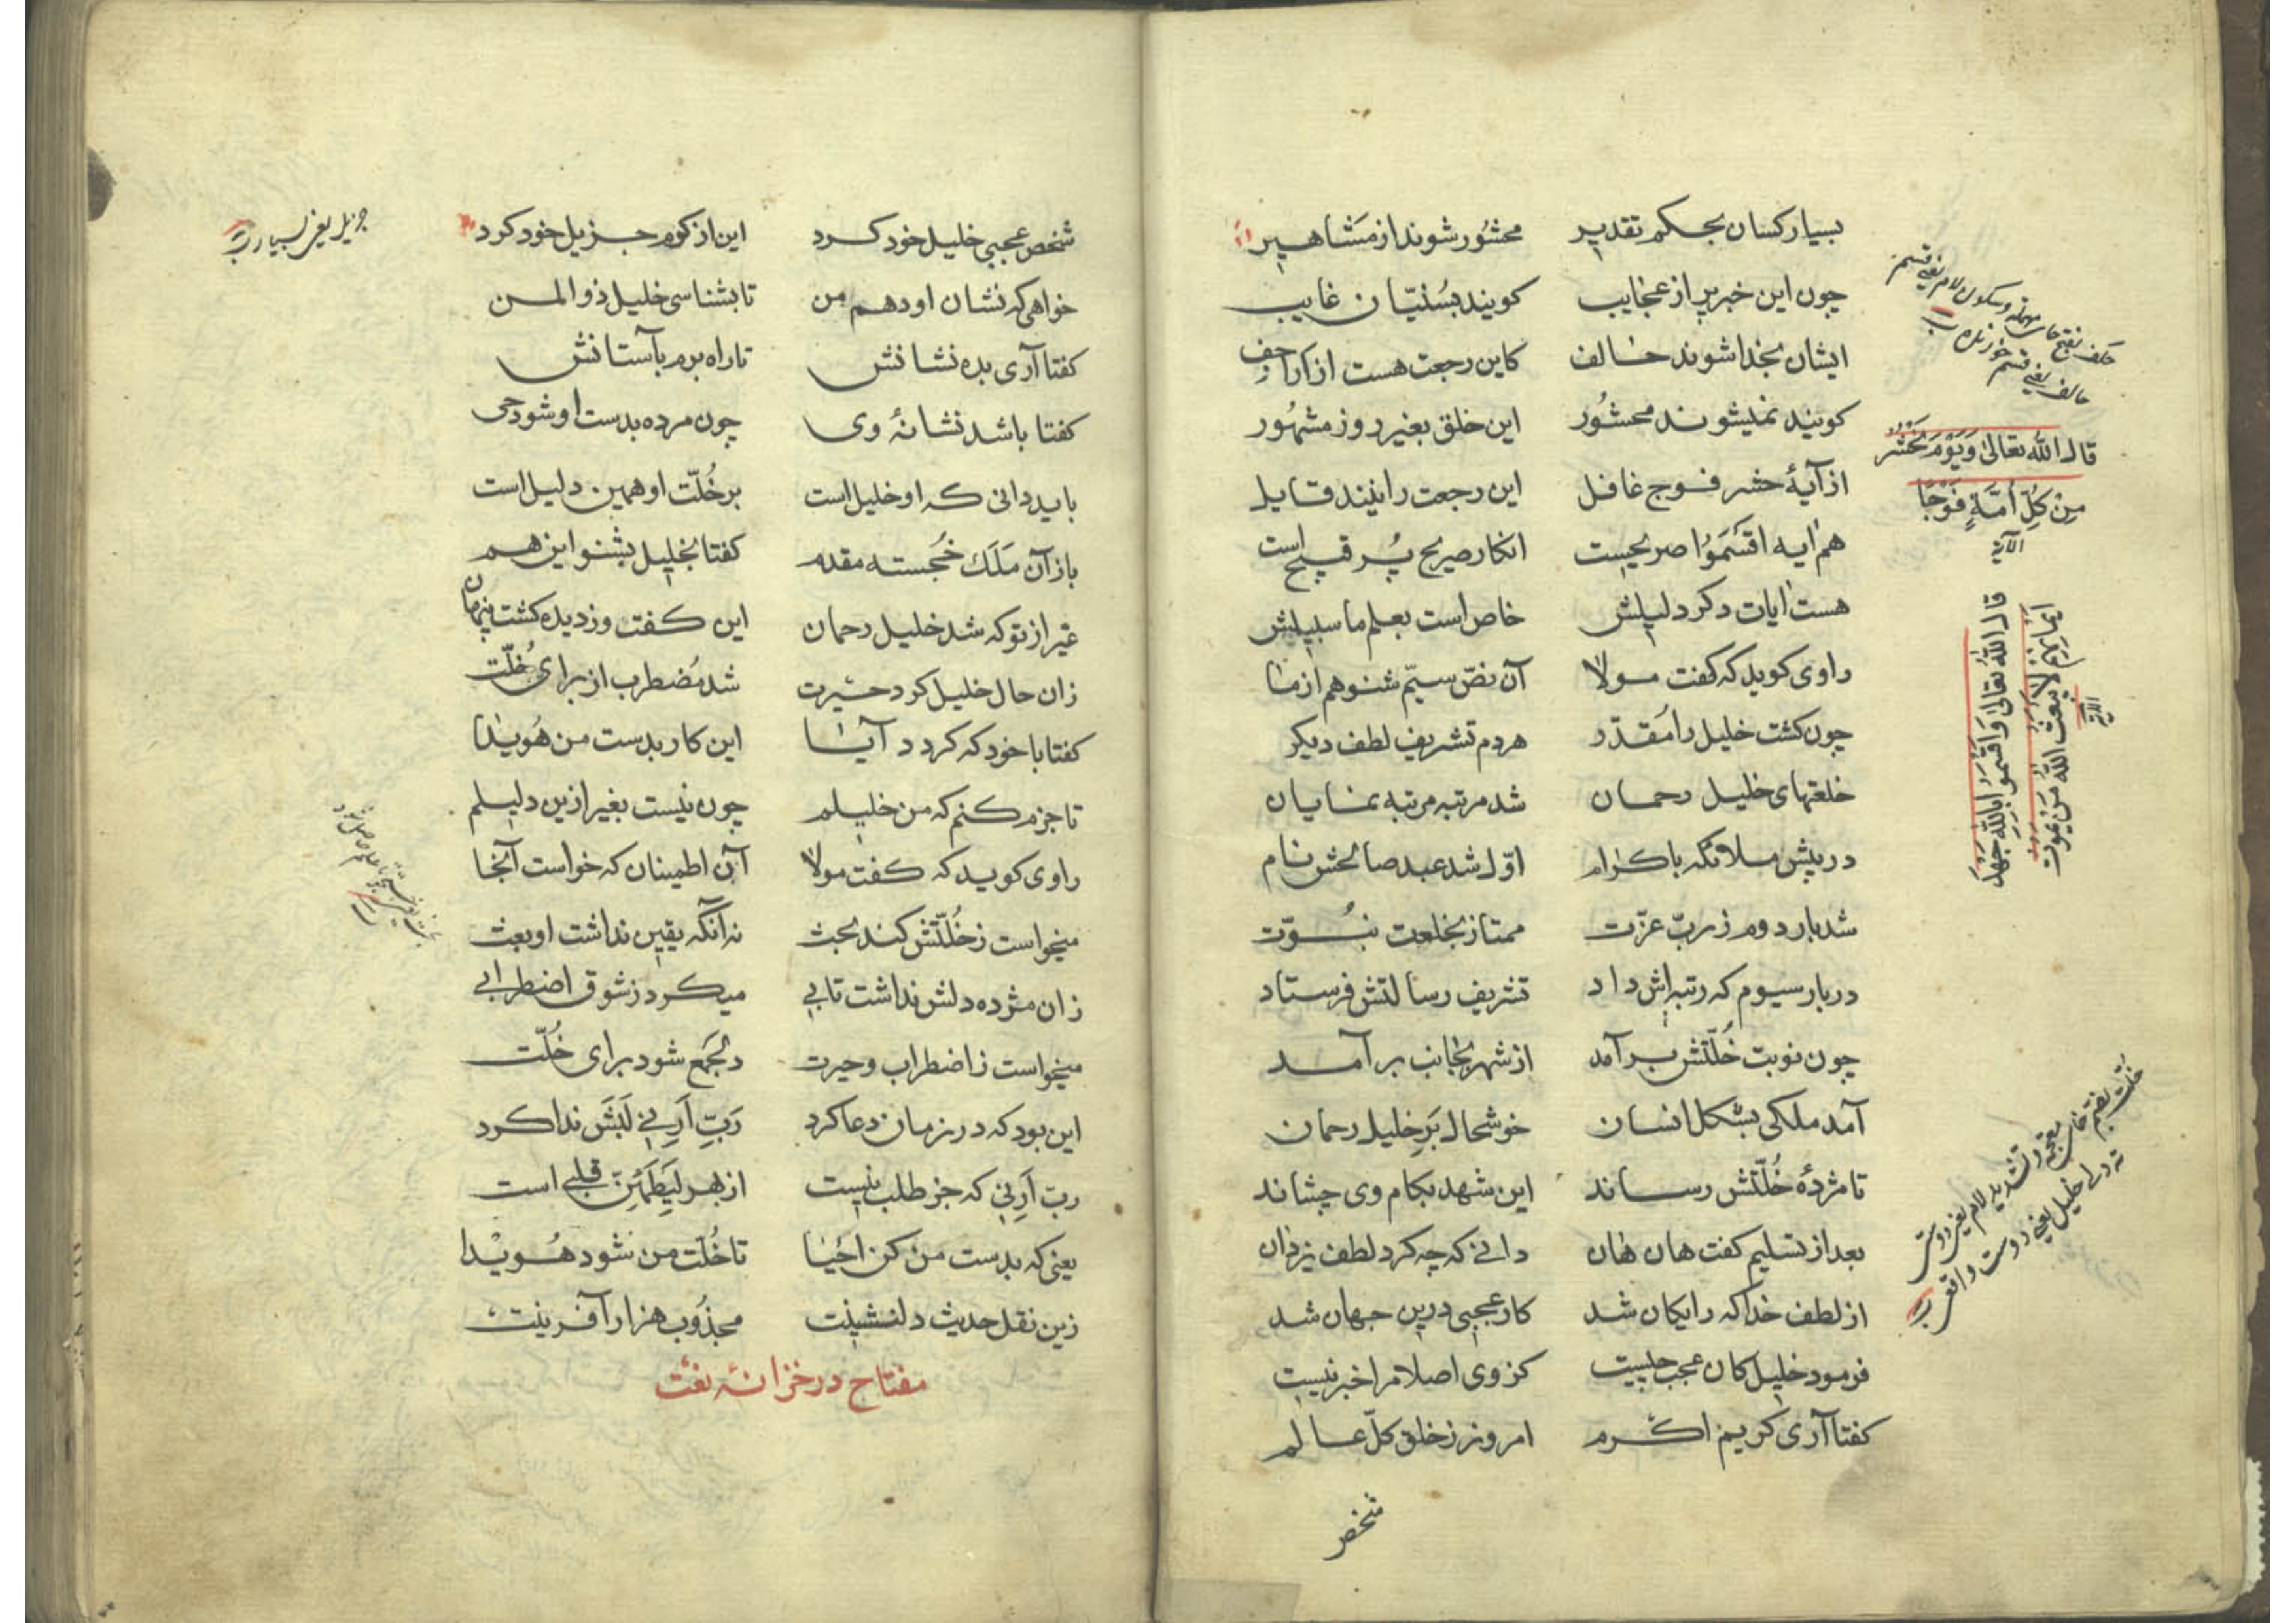 بسیار کسان بحکم تقدیر محشور شوند از مشاهیر
چون این خبر پر از عجایب کویند بسُنّیان غایب
ایشان بخدا شوند حالف کاین رجعت هست از اراجف
کویند نمیشوند محشور این خلق بغیر روز مشهور
از آیۀ حشر فوج غافل این رجعت را نیند قایل
هم ایه اقسَمُوا صریحست انکار صریح پُر قبیح است
هست ایات دکر دلیلش خاص است بعلم ما سبیلش
راوی کوید که کفت مولا آن نصّ سیّم شنو هم از ما
چون کشت خلیل را مُقدّر هر دم تشریف لطف دیکر
خلعتهای خلیل رحمان شد مرتبه مرتبه نمایان
در پیش ملائکه باکرام اوّل شد عبد صالحش نام
شد بار دوم ز ربّ عزّت ممتاز بخلعت نبُوّت
در بار سیوم که رتبه‌اش داد تشریف رسالتش فرستاد
چون نوبت خُلّتش برآمد از شهر بجانب برآمد
آمد ملکی بشکل انسان خوشحال بَرِ خلیل رحمان
تا مژدۀ خُلّتش رساند این شهد بکام وی چشاند
بعد از تسلیم کفت هان هان دانی که چه کرد لطف یزدان
از لطف خدا که رایکان شد کار عجبی درین جهان شد
فرمود خلیل کان عجب چیست کز وی اصلا مرا خبر نیست
کفتا آری کریم اکرم امروز ز خلق کلّ عالم
شخص
حلف بفتح حای مهمله و سکون لام یعنی قسم
حالف یعنی قسم خورنده
قال الله تعالی وَیَوْمَ نَحْشُر
مِنْ کُلِّ اُمَّةٍ فَوْجًا
الآیة
قال الله تعالی وَاَقْسَمُوا بِاللّٰهِ جَهْدَ
اَیْمَانِهِمْ لَا یَبْعَثُ اللّٰهُ مَنْ یَمُوت
الآیة
خلت بضم خای معجمه و تشدید لام یعنی دوستی
خلیل یعنی دوست
شخص عجبی خلیل خود کرد این از کرم جزیل خود کرد
خواهی که نشان او دهم من تا بشناسی خلیل ذو المن
کفتا آری بده نشانش تا راه برم بآستانش
کفتا باشد نشانۀ وی چون مرده بدست او شود حی
باید دانی که او خلیل است بر خُلّت او همین دلیل است
باز آن مَلَک خُجسته مقدم کفتا بخلیل بشنو این هم
غیر از تو که شد خلیل رحمان این کفت و ز دیده کشت پنهان
زان حال خلیل کرد حیرت شد مُضطرب از برای خُلّت
کفتا با خود که کردد آیا این کار بدست من هُویدا
تا جزم کنم که من خلیلم چون نیست بغیر ازین دلیلم
راوی کوید که کفت مولا آن اطمینان که خواست آنجا
میخواست ز خُلّتش کند بحث نه آنکه یقین نداشت او بعث
زان مژده دلش نداشت تابی میکرد ز شوق اضطرابی
میخواست ز اضطراب و حیرت دلجمع شود برای خُلّت
این بود که در زمان دعا کرد رَبِّ اَرِنِی لَبَش ندا کرد
ربّ اَرِنِی که جز طلب نیست از بهر لِیَطْمَئِنَّ قلبی است
یعنی که بدست من کن احیا تا خُلّت من شود هُویدا
زین نقل حدیث دلنشینت مجذوب هزار آفرینت
مفتاح در خزانۀ نعت
جزیل یعنی بسیار